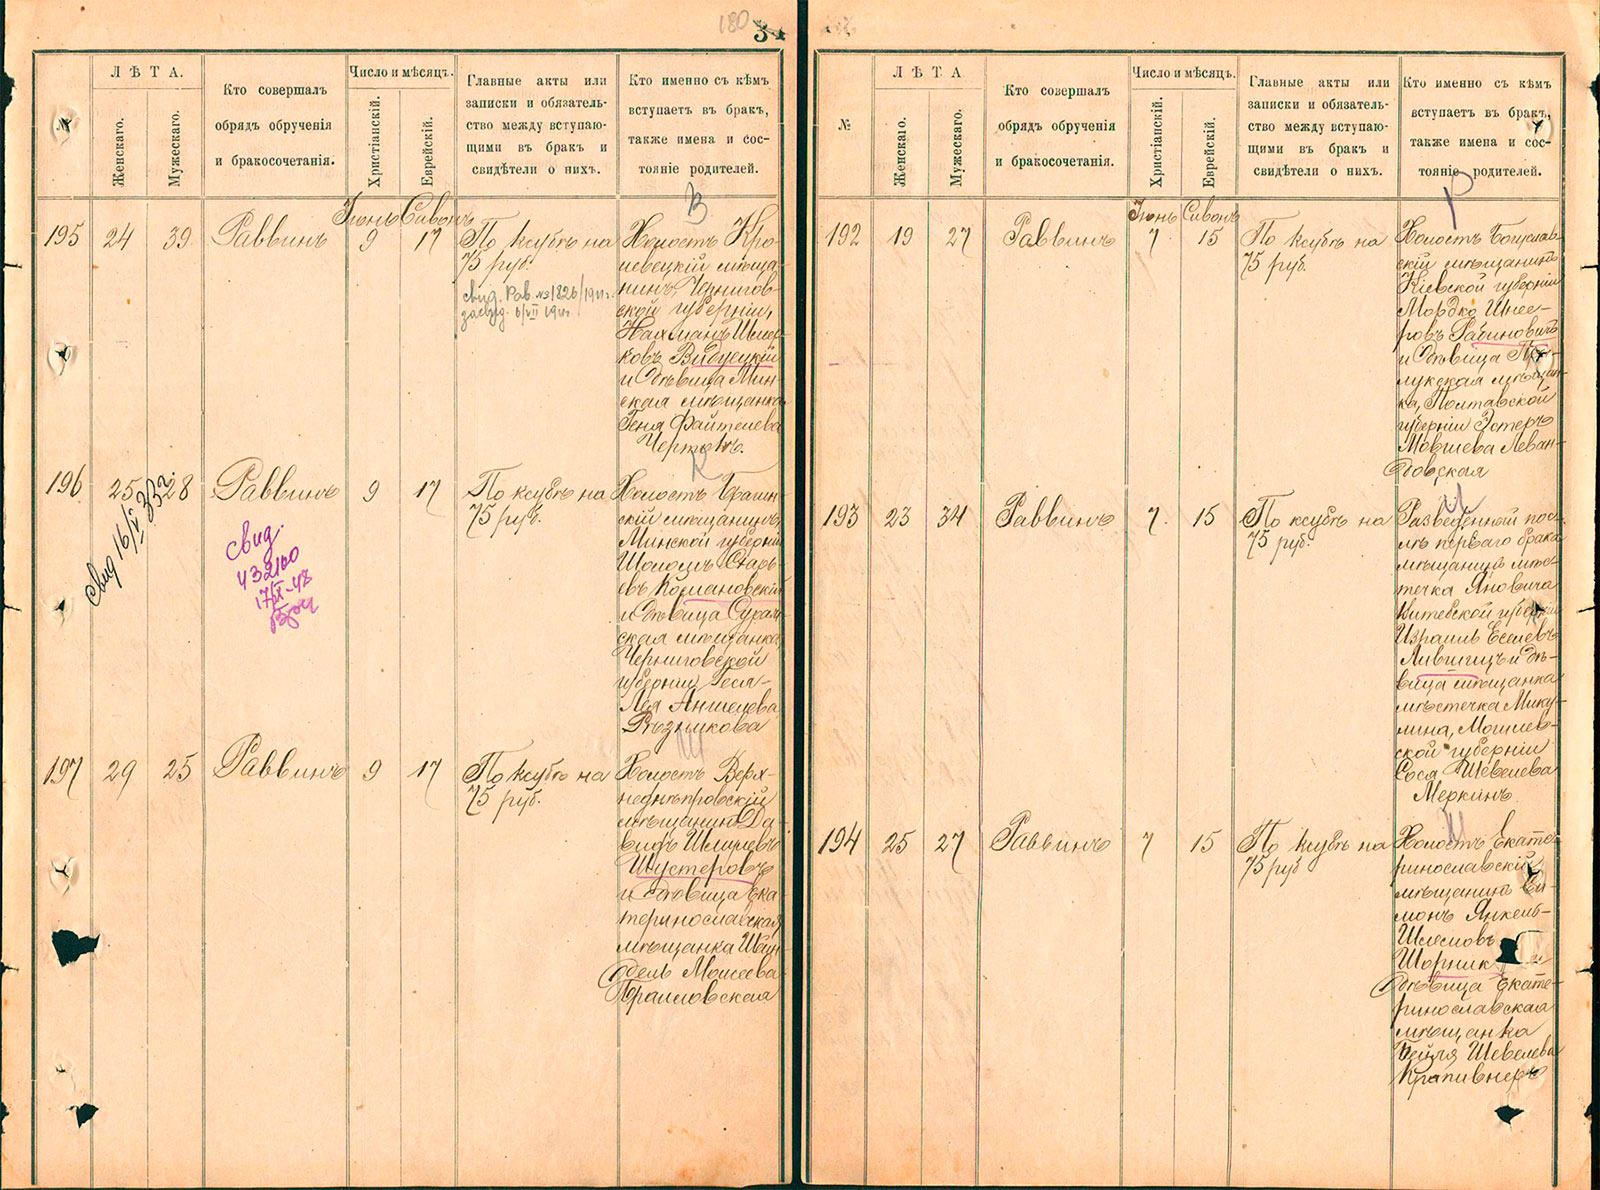 180
34
№
ЛѢТА.
Женскаго.
Мужескаго.
Кто совершалъ
обрядъ обрученія
и бракосочетанія.
Число и мѣсяцъ.
Христіанскій.
Еврейскій.
Главные акты или
записки и обязатель-
ство между вступаю-
щими въ бракъ и
свидѣтели о нихъ.
Кто именно съ кѣмъ
вступаетъ въ бракъ,
также имена и сос-
тояніе родителей.
В
Іюнь Сивонъ
195 24 39 Раввинъ 9 17
По ксубѣ на
75 руб.
свид. Рав. №1826/1911г.
засвид. 6/VII 1911г
Холостъ Кро-
левецкій мѣща-
нинъ, Чернигов-
ской губерніи,
Нахманъ
ковъ
и дѣвица Мин-
ская мѣщанка
Геня Файтелева
Чертокъ.
К
196 25 28 Раввинъ 9 17
свид 16/V 33г.
свид.
432100
17/IX-48
По ксубѣ на
75 руб.
Холостъ Брагин-
скій мѣщанинъ,
Минской губерніи
Шоломъ
евъ
и дѣвица Сураж-
ская мѣщанка,
Черниговской
губерніи Геся-
Лея Аншелева
Вѣзникова
Ш
197 29 25 Раввинъ 9 17
По ксубѣ на
75 руб.
Холостъ Верх-
неднѣпровскій
мѣщанинъ Да-
видъ
Шустеровъ
и дѣвица Ека-
теринославская
мѣщанка
дель Моисеева
Праиловская
№
ЛѢТА
Женскаго.
Мужескаго.
Кто совершалъ
обрядъ обрученія
и бракосочетанія.
Число и мѣсяцъ.
Христіанскій.
Еврейскій.
Главные акты или
записки и обязатель-
ство между вступаю-
щими въ бракъ и
свидѣтели о нихъ.
Кто именно съ кѣмъ
вступаетъ въ бракъ,
также имена и сос-
тояніе родителей.
Р
Іюнь Сивонъ
192 19 27 Раввинъ 7 15
По ксубѣ на
75 руб.
Холостъ Богуслав-
скій мѣщанинъ
Кіевской губерніи
Мордко Шнее-
ровъ Рабиновичъ
и дѣвица При-
лукская мѣщан-
ка, Полтавской
губерніи Эстеръ
Мовшева Леван-
довская
Л
193 23 34 Раввинъ 7 15
По ксубѣ на
75 руб.
Разведенный пос-
лѣ перваго брака
мѣщанинъ мѣс-
течка Яновича
Витебской губерніи
Израиль Еселевъ
Лившицъ и дѣ-
вица мѣщанка
мѣстечка Мику-
лина, Могилев-
ской губерніи
Сося Шевелева
Меркинъ
Ш
194 25 27 Раввинъ 7 15
По ксубѣ на
75 руб
Холостъ Екате-
ринославскій
мѣщанинъ Си-
монъ Янкель-
Шлемовъ
Шорник и
дѣвица Екате-
ринославская
мѣщанка
Бейля Шевелева
Крапивнеръ